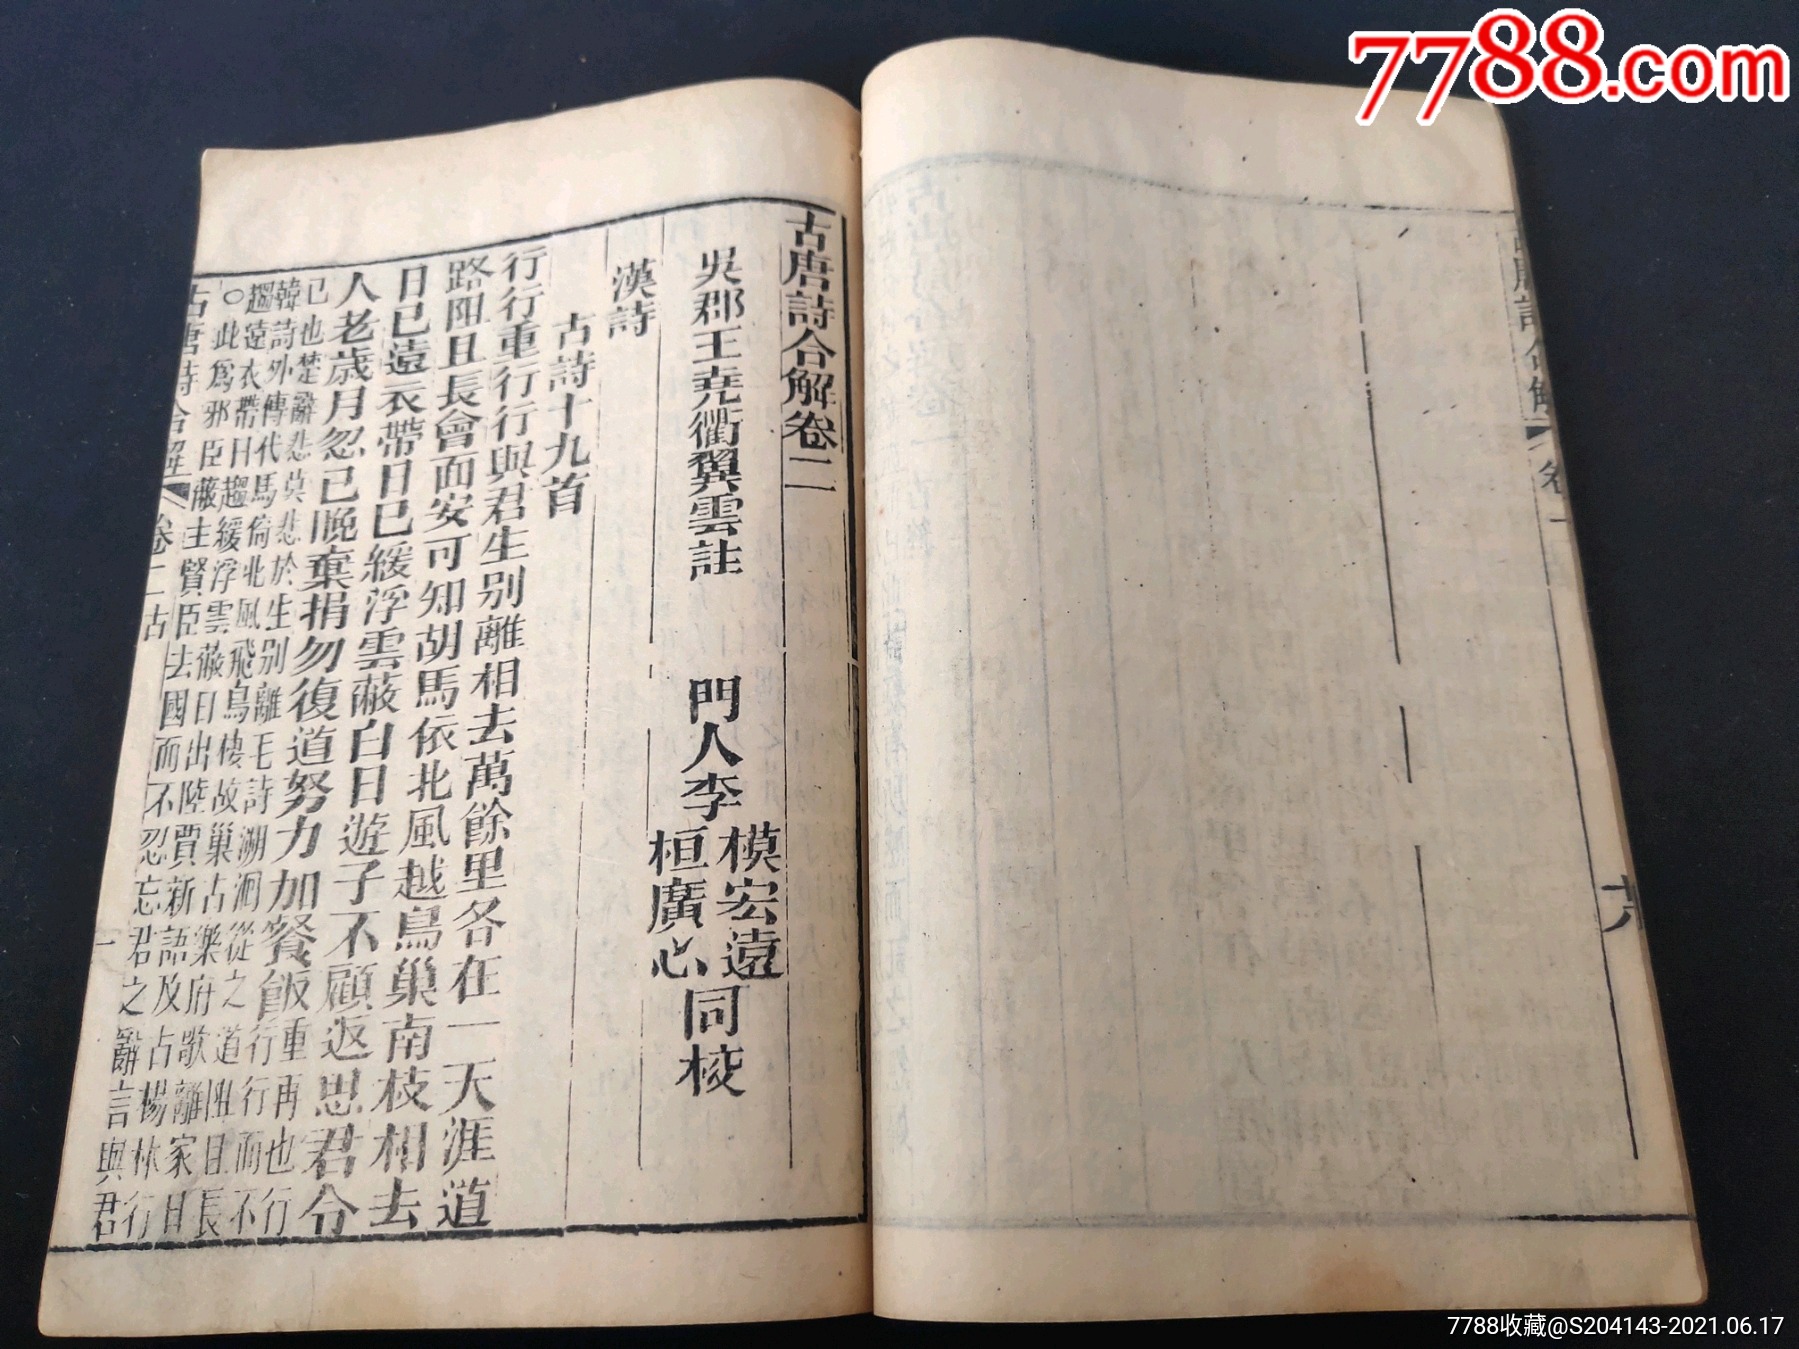 7788.com
古唐詩合解卷二
吳郡王堯衢翼雲註
門人李
模宏遠
桓廣心
同校
漢詩
古詩十九首
行行重行行與君生別離相去萬餘里各在一天涯道
路阻且長會面安可知胡馬依北風越鳥巢南枝相去
日已遠衣帶日已緩浮雲蔽白日遊子不顧返思君令
人老歲月忽已晚棄捐勿復道努力加餐飯
重再也行
行行而不
已也楚辭悲莫悲於生別離毛詩溯洄從之道阻且長
韓詩外傳代馬倚北風飛鳥棲故巢古樂府歌離家日
趨遠衣帶日趨緩浮雲蔽日出陸賈新語及古楊林行
○此爲邪臣蔽主賢臣去國而不忍忘君之辭言與君
古唐詩合解
卷二古
一
7788收藏@S204143-2021.06.17